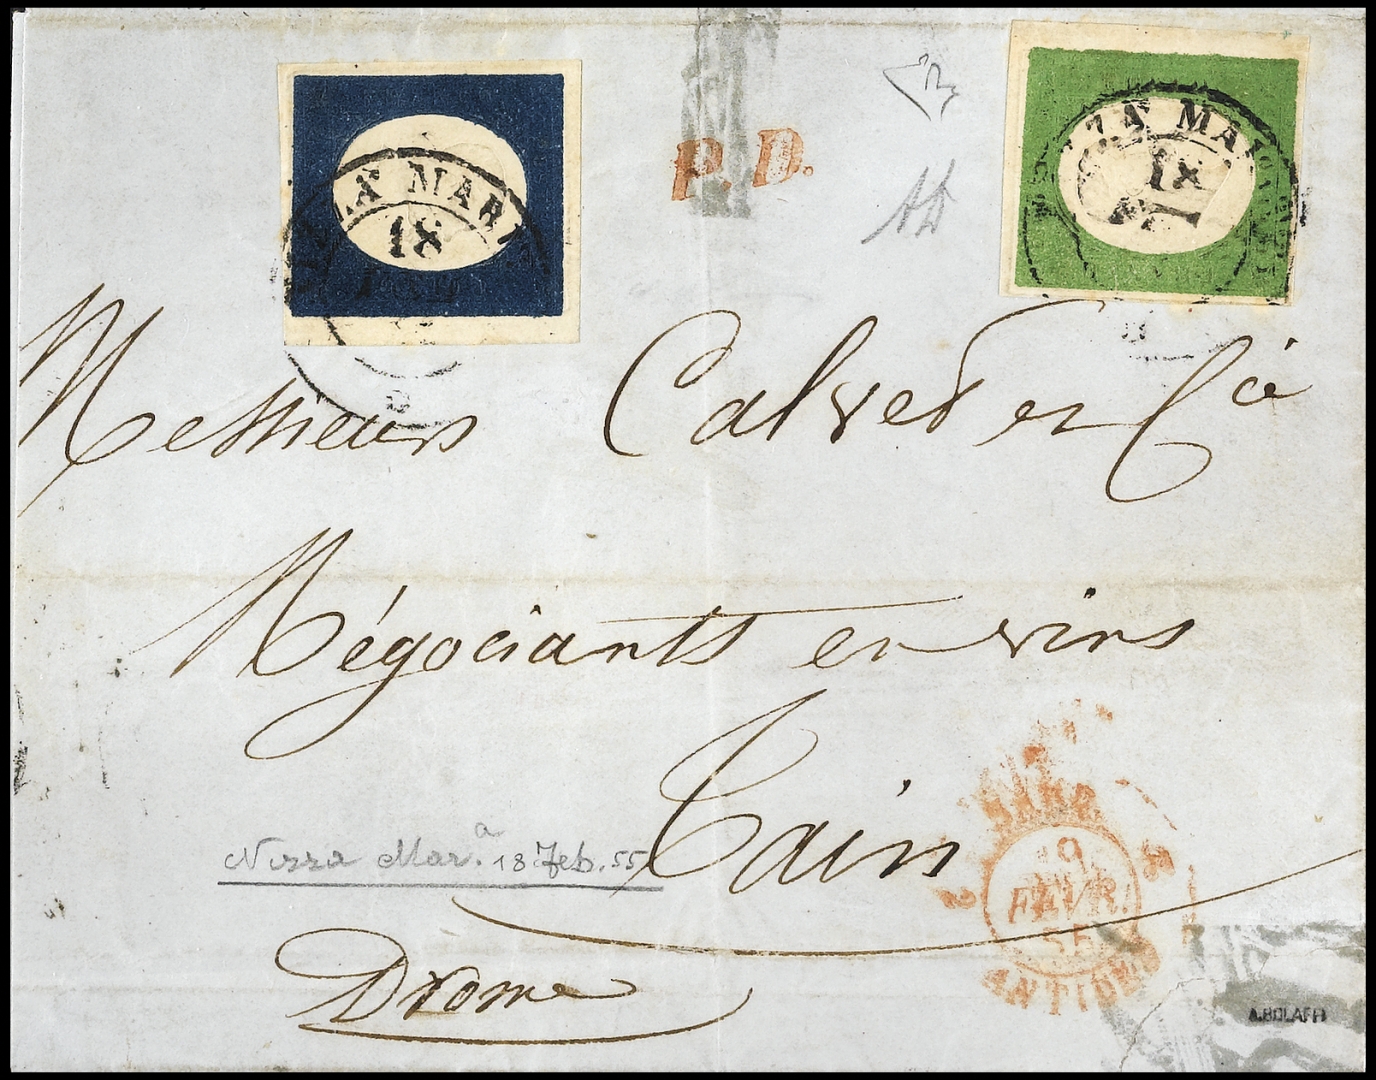 ZA MARIT
18
FEB
NIZZA MARITTIMA
18
P.D.
AD
Messieurs Calvet et Cie
Négociants en vins
Tain
Nizza Mar.a 18 Feb. 55
SARD.
19
FEVR.
55
ANTIBES
2
Drome
A.BOLAFFI